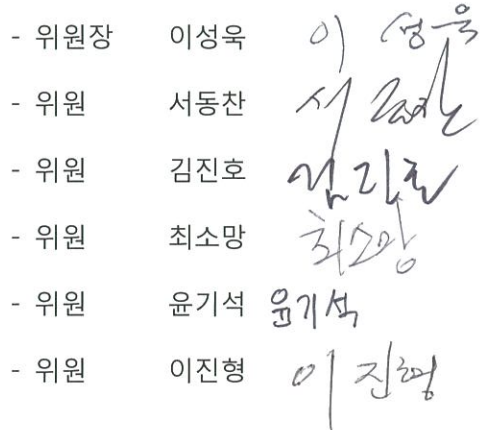 - 위원장 이성욱 이 성욱
- 위원 서동찬 서동찬
- 위원 김진호 김진호
- 위원 최소망 최소망
- 위원 윤기석 윤기석
- 위원 이진형 이 진형